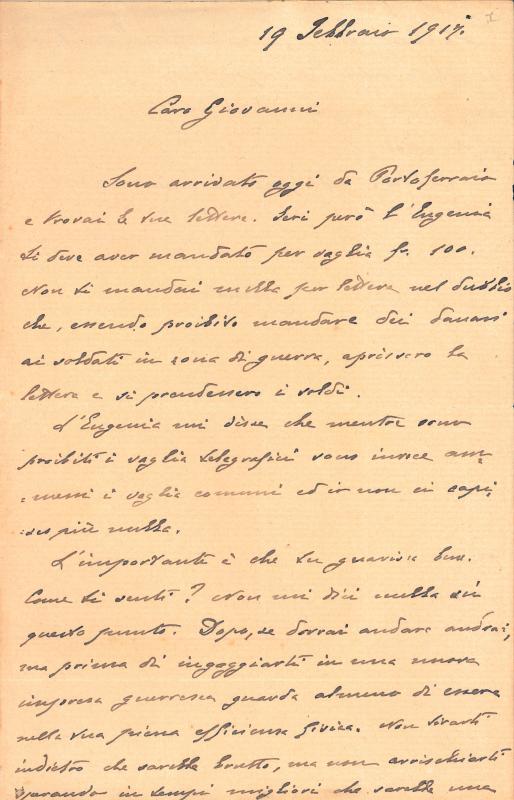 19 Febbraio 1917.
Caro Giovanni
Sono arrivato oggi da Portoferraio
e trovai le tue lettere. Ieri però l'Eugenia
ti deve aver mandato per vaglia fr. 100.
Non ti mandai nulla per lettera nel dubbio
che, essendo proibito mandare dei danari
ai soldati in zona di guerra, aprissero la
lettera e si prendessero i soldi.
L'Eugenia mi disse che mentre sono
proibiti i vaglia telegrafici sono invece am=
=messi i vaglia comuni ed io non ci capi=
=sco più nulla.
L'importante è che tu guarisca bene.
Come ti senti? Non mi dici nulla su
questo punto. Dopo, se dovrai andare andrai,
ma prima di ingaggiarti in una nuova
impresa guerresca guarda almeno di essere
nella tua piena efficienza fisica. Non tirarti
indietro che sarebbe brutto, ma non arrischiarti
sperando in tempi migliori che sarebbe una